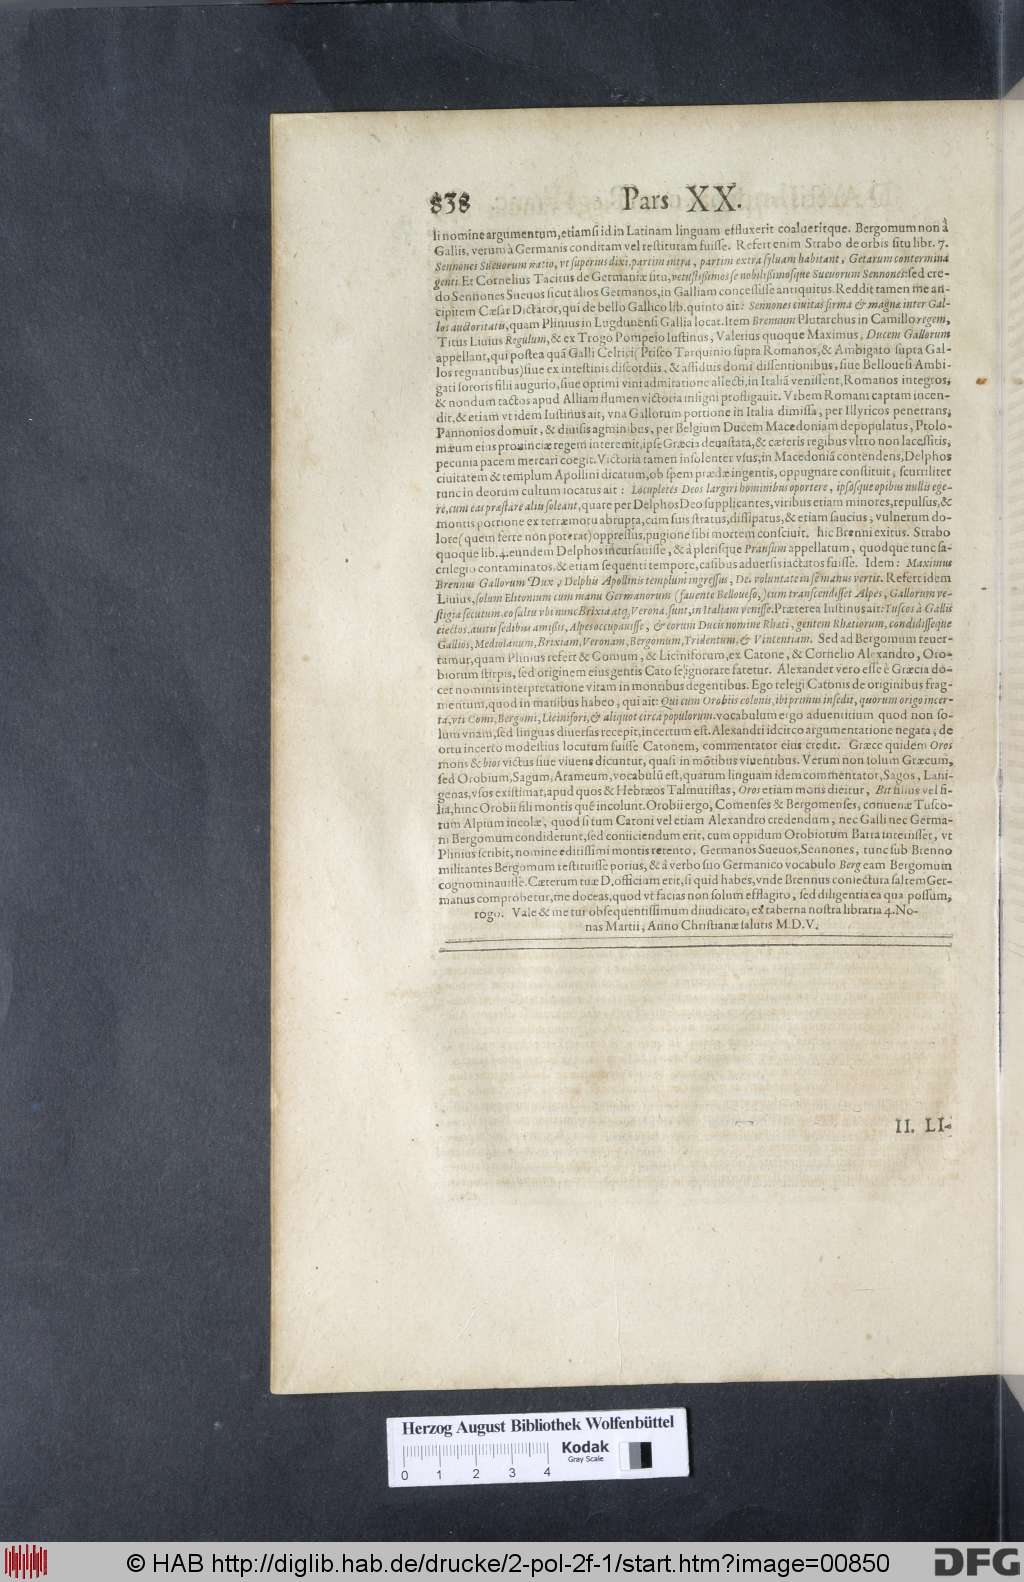 838 Pars XX.
li nomine argumentum, etiamſi id in Latinam linguam effluxerit coalueritque. Bergomum non à
Gallis, verum à Germanis conditam vel reſtitutam fuiſſe. Refert enim Strabo de orbis ſitu libr. 7.
Sennones Sueuorum natio, vt ſuperius dixi, partim intra, partim extra ſyluam habitant, Getarum contermina
genti. Et Cornelius Tacitus de Germaniæ ſitu, vetuſtiſſimos ſe nobiliſſimoſque Sueuorum Sennones: ſed cre-
do Sennones Sueuos ſicut alios Germanos, in Galliam conceſſiſſe antiquitus. Reddit tamen me an-
cipitem Cæſar Dictator, qui de bello Gallico lib. quinto ait: Sennones ciuitas firma & magna inter Gal-
los auctoritatis, quam Plinius in Lugdunenſi Gallia locat. Item Brennum Plutarchus in Camillo regem,
Titus Liuius Regulum, & ex Trogo Pompeio Iuſtinus, Valerius quoque Maximus, Ducem Gallorum
appellant, qui poſtea quã Galli Celtici, Priſco Tarquinio ſupra Romanos, & Ambigato ſupra Gal-
los regnantibus) ſiue ex inteſtinis diſcordiis, & aſſiduis domi diſſentionibus, ſiue Belloueſi Ambi-
gati ſororis filii augurio, ſiue optimi vini admiratione aſſecti, in Italiã veniſſent, Romanos integros,
& nondum tactos apud Alliam flumen victoria inſigni profligauit. Vrbem Romam captam incen-
dit, & etiam vt idem Iuſtinus ait, vna Gallorum portione in Italia dimiſſa, per Illyricos penetrans,
Pannonios domuit, & diuiſis agminibus, per Belgium Ducem Macedoniam depopulatus, Ptolo-
mæum eius prouinciæ regem interemit, ipſe Græcia deuaſtata, & cæteris regibus vltro non laceſſitis,
pecunia pacem mercari coegit. Victoria tamen inſolenter vſus, in Macedoniã contendens, Delphos
ciuitatem & templum Apollini dicatum, ob ſpem prædæ ingentis, oppugnare conſtituit, ſcurriliter
tunc in deorum cultum iocatus ait: Locupletes Deos largiri hominibus oportere, ipſoſque opibus nullis ege-
re, cum eas præſtare aliis ſoleant, quare per Delphos Deo ſupplicantes, viribus etiam minores, repulſus, &
montis portione ex terræmotu abrupta, cum ſuis ſtratus, diſſipatus, & etiam ſaucius, vulnerum do-
lore (quem ferre non poterat) oppreſſus, pugione ſibi mortem conſciuit. hic Brenni exitus. Strabo
quoque lib. 4. eundem Delphos incurſauiſſe, & à pleriſque Pranſum appellatum, quodque tunc ſa-
crilegio contaminatos, & etiam ſequenti tempore, caſibus aduerſis iactatos fuiſſe. Idem: Maximus
Brennus Gallorum Dux, Delphis Apollinis templum ingreſſus, Dei voluntate in ſe manus vertit. Refert idem
Liuius, ſolum Elitonium cum manu Germanorum (fauente Belloueſo,) cum tranſcendiſſet Alpes, Gallorum ve-
ſtigia ſecutum, eo ſaltu vbi nunc Brixia atq; Verona ſunt, in Italiam veniſſe. Præterea Iuſtinus ait: Tuſcos à Gallis
eiectos, auitis ſedibus amiſſis, Alpes occupauiſſe, & eorum Ducis nomine Rhæti, gentem Rhætiorum, condidiſſeque
Gallos, Mediolanum, Brixiam, Veronam, Bergomum, Tridentum, & Vincentiam. Sed ad Bergomum reuer-
tamur, quam Plinius refert & Comum, & Liciniforum, ex Catone, & Cornelio Alexandro, Oro-
biorum ſtirpis, ſed originem eius gentis Cato ſe ignorare fatetur. Alexander vero eſſe è Græcia do-
cet nominis interpretatione vitam in montibus degentibus. Ego relegi Catonis de originibus frag-
mentum, quod in manibus habeo, qui ait: Qui cum Orobiis colonis, ibi primus inſedit, quorum origo incer-
ta, vti Comi, Bergomi, Licinifori, & aliquot circa populorum. vocabulum ergo aduentitium quod non ſo-
lum vnam, ſed linguas diuerſas recepit, incertum eſt. Alexandri idcirco argumentatione negata, de
ortu incerto modeſtius locutum fuiſſe Catonem, commentator eius credit. Græce quidem Oros
mons & bios victus ſiue viuens dicuntur, quaſi in mõtibus viuentibus. Verum non ſolum Græcum,
ſed Orobium, Sagum, Arameum, vocabulũ eſt, quarum linguam idem commentator, Sagos, Lani-
genas, vſos exiſtimat, apud quos & Hebræos Talmutiſtas, Oros etiam mons dicitur, Bit filius vel fi-
lia, hinc Orobii fili montis quẽ incolunt. Orobii ergo, Comenſes & Bergomenſes, conuenæ Tuſco-
rum Alpium incolæ, quod ſi tum Catoni vel etiam Alexandro credendum, nec Galli nec Germa-
ni Bergomum condiderunt, ſed coniiciendum erit, cum oppidum Orobiorum Barra interiiſſet, vt
Plinius ſcribit, nomine editiſſimi montis retento, Germanos Sueuos, Sennones, tunc ſub Brenno
militantes Bergomum reſtituiſſe potius, & à verbo ſuo Germanico vocabulo Berg eam Bergomum
cognominauiſſe. Cæterum tuæ D. officium erit, ſi quid habes, vnde Brennus coniectura ſaltem Ger-
manus comprobetur, me doceas, quod vt facias non ſolum efflagito, ſed diligentia ea qua poſſum,
rogo. Vale & me tui obſequentiſſimum diiudicato, ex taberna noſtra libraria 4. No-
nas Martii, Anno Chriſtianæ ſalutis M.D.V.
II. LI-
Herzog August Bibliothek Wolfenbüttel
Kodak
Gray Scale
0 1 2 3 4
© HAB http://diglib.hab.de/drucke/2-pol-2f-1/start.htm?image=00850
DFG